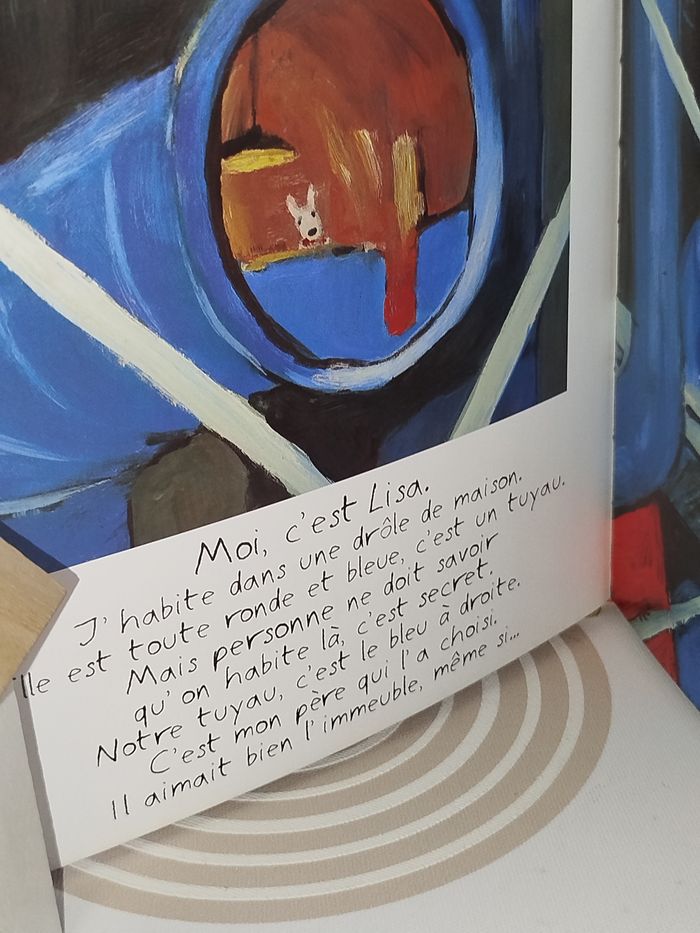 Moi, c'est Lisa.
J'habite dans une drôle de maison.
lle est toute ronde et bleue, c'est un tuyau.
Mais personne ne doit savoir
qu'on habite là, c'est secret.
Notre tuyau, c'est le bleu à droite.
C'est mon père qui l'a choisi.
Il aimait bien l'immeuble, même si...